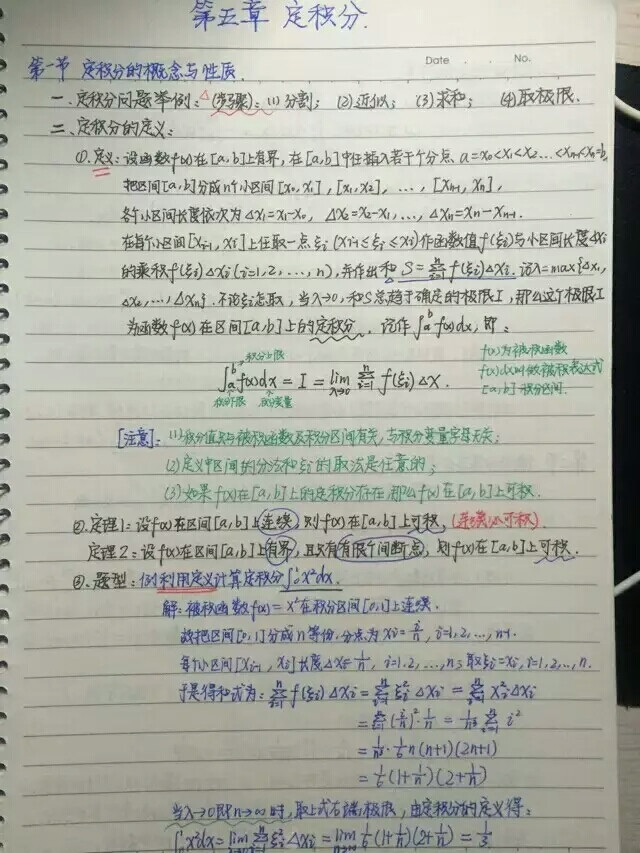 第五章 定积分.
Date . . No.
第一节 定积分的概念与性质.
一.定积分问题举例:△(步骤):(1)分割; (2)近似; (3)求和; (4)取极限.
二.定积分的定义:
①.定义:设函数f(x)在[a,b]上有界,在[a,b]中任插入若干个分点 a=x₀<x₁<x₂...<xₙ₋₁<xₙ=b,
把区间[a,b]分成n个小区间[x₀,x₁],[x₁,x₂],...,[xₙ₋₁,xₙ],
各个小区间长度依次为Δx₁=x₁-x₀, Δx₂=x₂-x₁,...,Δxₙ=xₙ-xₙ₋₁.
在每个小区间[xᵢ₋₁,xᵢ]上任取一点ξᵢ(xᵢ₋₁≤ξᵢ≤xᵢ)作函数值f(ξᵢ)与小区间长度Δxᵢ
的乘积f(ξᵢ)Δxᵢ(i=1,2,...,n),并作出和 S=∑ⁿᵢ₌₁f(ξᵢ)Δxᵢ.记λ=max{Δx₁,
Δx₂,...,Δxₙ}.不论ξᵢ怎取,当λ→0,和S总趋于确定的极限I,那么这个极限I
为函数f(x)在区间[a,b]上的定积分.记作∫ₐᵇf(x)dx,即:
积分上限 f(x)为被积函数
∫ₐᵇf(x)dx=I=lim λ→0 ∑ⁿᵢ₌₁ f(ξᵢ)Δx. f(x)dx叫做被积表达式
积分下限 积分变量 [a,b]-积分区间.
[注意]:(1)积分值只与被积函数及积分区间有关,与积分变量字母无关;
(2)定义中区间的分法和ξᵢ的取法是任意的;
(3)如果f(x)在[a,b]上的定积分存在,那么f(x)在[a,b]上可积.
②.定理1:设f(x)在区间[a,b]上连续,则f(x)在[a,b]上可积,(连续必可积)
定理2:设f(x)在区间[a,b]上有界,且只有有限个间断点,则f(x)在[a,b]上可积.
③.题型:例利用定义计算定积分∫₀¹x²dx.
解:被积函数f(x)=x²在积分区间[0,1]上连续.
故把区间[0,1]分成n等份.分点为xᵢ=i/n,i=1,2,...,n-1.
每个小区间[xᵢ₋₁,xᵢ]长度Δxᵢ=1/n,i=1,2,...,n;取ξᵢ=xᵢ,i=1,2,...,n.
于是得和式为:∑ⁿᵢ₌₁f(ξᵢ)Δxᵢ=∑ⁿᵢ₌₁ξᵢ²Δxᵢ=∑ⁿᵢ₌₁xᵢ²Δxᵢ
=∑ⁿᵢ₌₁(i/n)²·1/n=1/n³∑ⁿᵢ₌₁i²
=1/n³·1/6n(n+1)(2n+1)
=1/6(1+1/n)(2+1/n)
当λ→0即n→∞时,取上式右端极限,由定积分的定义得:
∫₀¹x²dx=lim λ→0 ∑ⁿᵢ₌₁ξᵢ²Δxᵢ=lim n→∞ 1/6(1+1/n)(2+1/n)=1/3